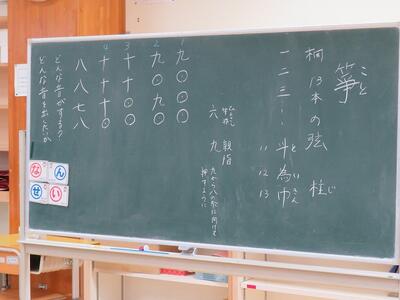 箏 こと
桐 13本の弦 柱 じ
一二三… 斗 為 巾 と い きん
11 12 13
六 九 親指
九から八の弦に向けて
押すように
1 九〇〇〇
2 九〇九〇
3 十十〇〇
4 十十十〇
八八七八
どんな音がする?
どんな音を出したいか
なん
せい